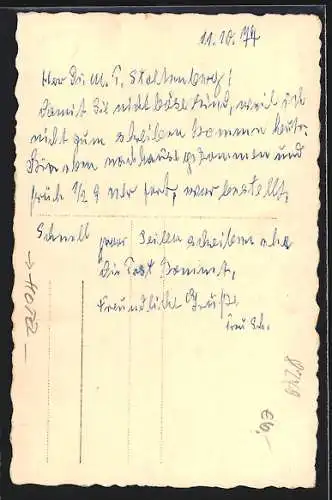 11.10.44
Herr Dr. M. T. Stoltenberg!
Damit Sie nicht böse sind, weil ich
nicht zum schreiben komme heute.
Bin eben nachhause gekommen und
früh 1/2 9 Uhr fort, war bestellt.
Schnell paar Zeilen schreiben ehe
die Post kommt.
Freundliche Grüße
Frau Sch.
→ 40702 –
8249
€6,-